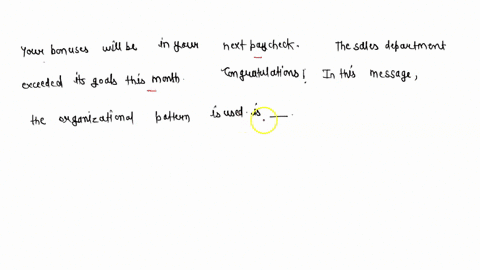 Your bonuses will be in your next paycheck. The sales department
exceeded its goals this month. Congratulations! In this message,
the organizational pattern is used is. __